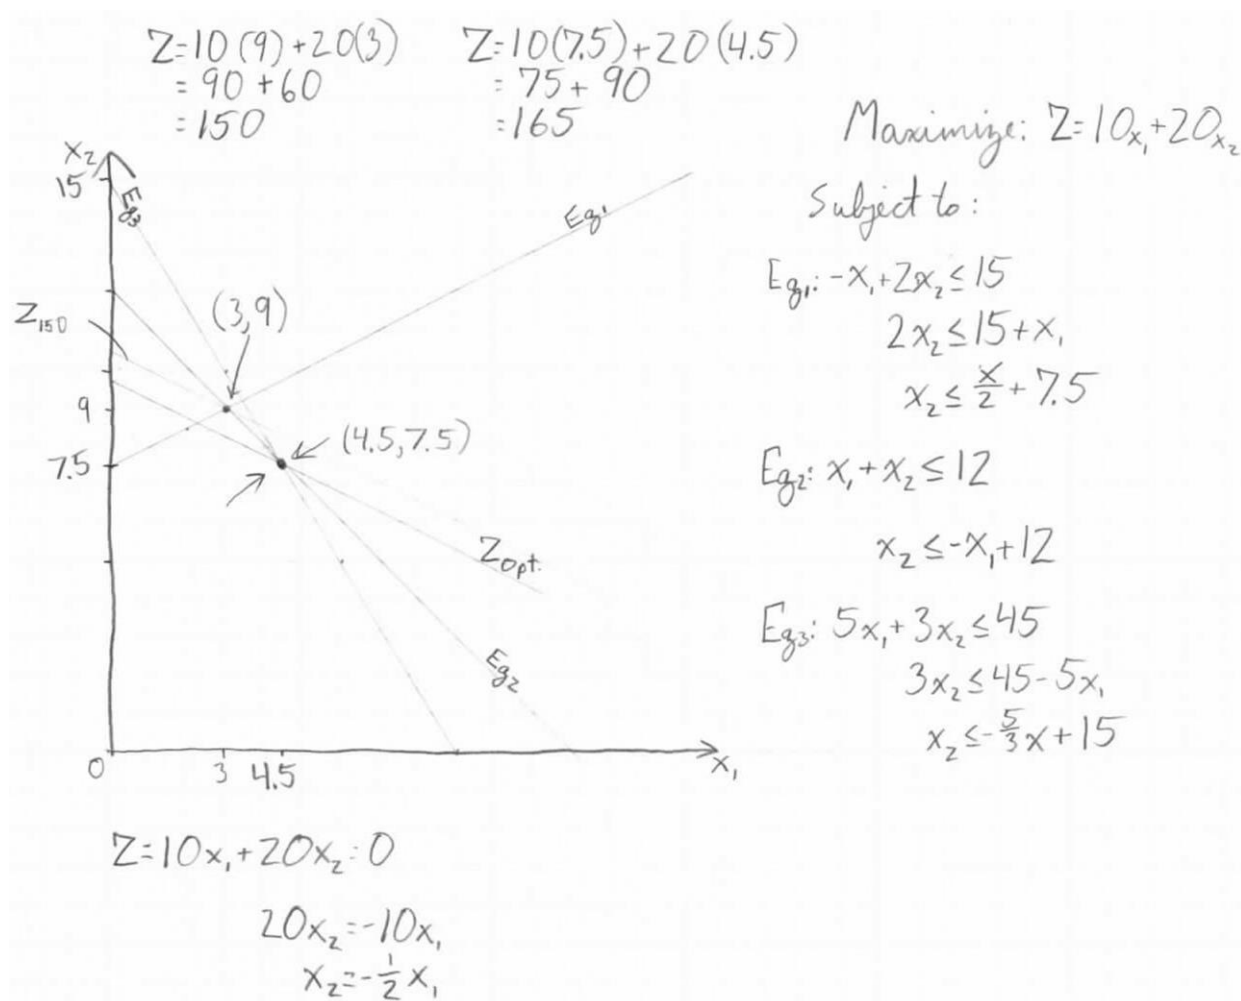 Z=10(9)+20(3)
= 90 + 60
= 150
Z=10(7.5)+20(4.5)
= 75 + 90
= 165
Maximize: Z=10x₁+20x₂
Subject to:
Eq₁: -x₁+2x₂≤15
2x₂≤15+x₁
x₂≤x/2+7.5
Eq₂: x₁+x₂≤12
x₂≤-x₁+12
Eq₃: 5x₁+3x₂≤45
3x₂≤45-5x₁
x₂≤-5/3x+15
x₂
15
Eq₃
Eq₁
Z₁₅₀
(3,9)
9
(4.5,7.5)
7.5
Zopt.
Eq₂
0
3
4.5
x₁
Z=10x₁+20x₂=0
20x₂=-10x₁
x₂=-1/2x₁